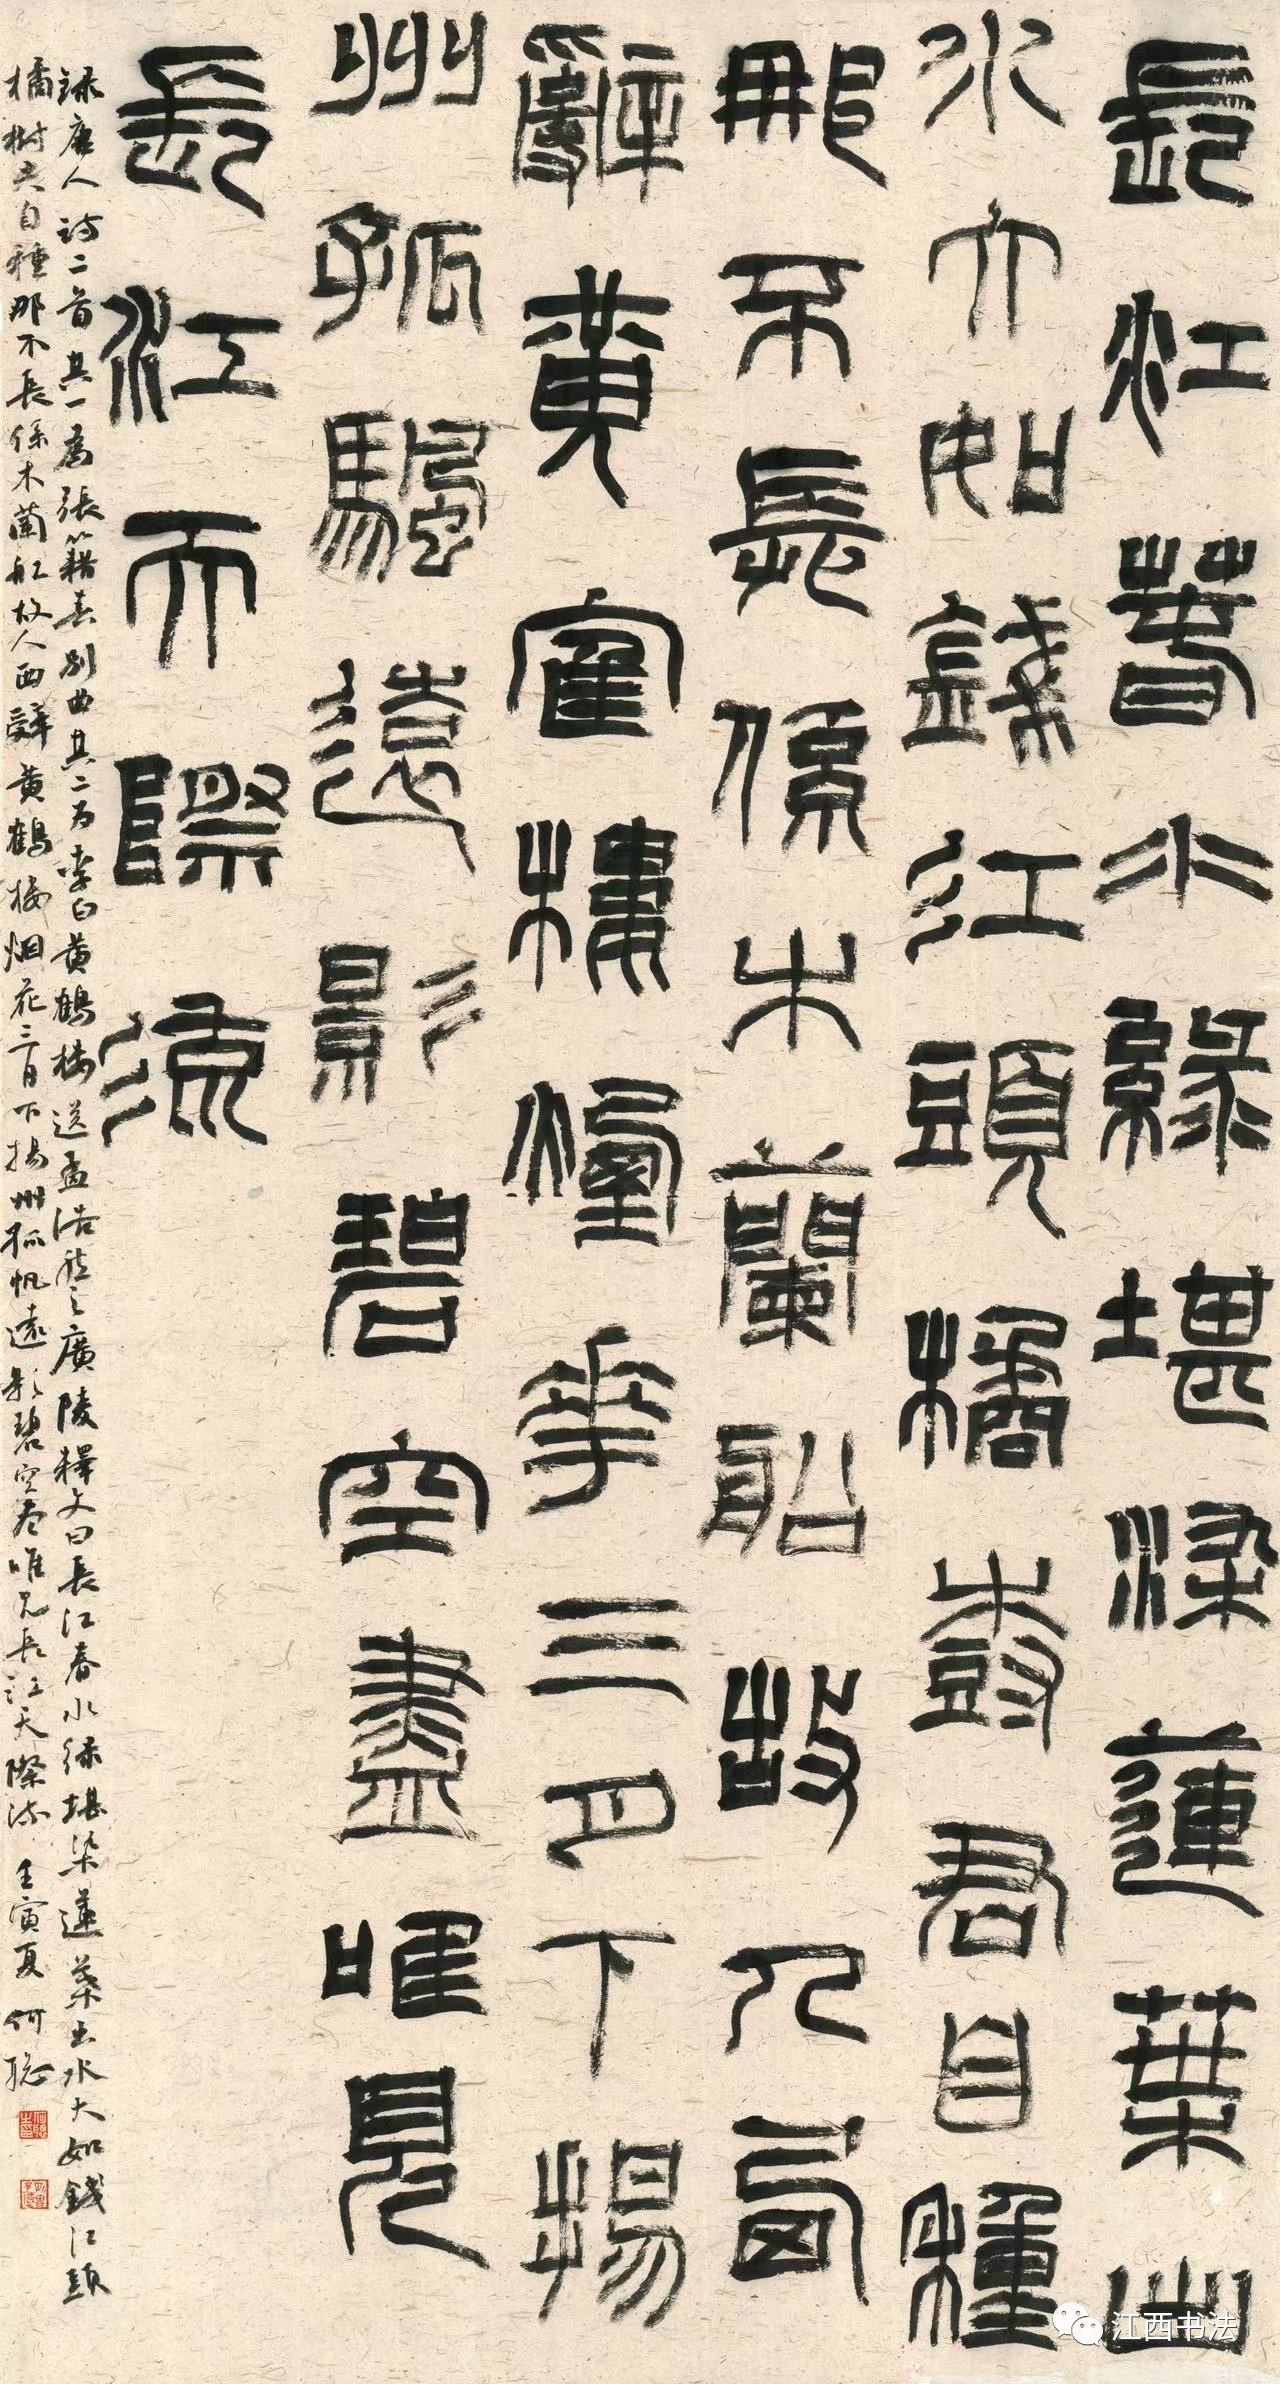 長江春水綠堪染蓮葉出
水大如錢江頭橘樹君自種
那不長係木蘭船故人西
辭黄鶴樓煙花三月下揚
州孤帆遠影碧空盡唯見
長江天際流
録唐人詩二首其一為張籍春別曲其二為李白黄鶴樓送孟浩然之廣陵釋文曰長江春水緑堪染蓮葉出水大如錢江頭
橘樹君自種那不長係木蘭船故人西辭黄鶴樓烟花三月下揚州孤帆遠影碧空盡唯見長江天際流 壬寅夏 何聪
江西书法